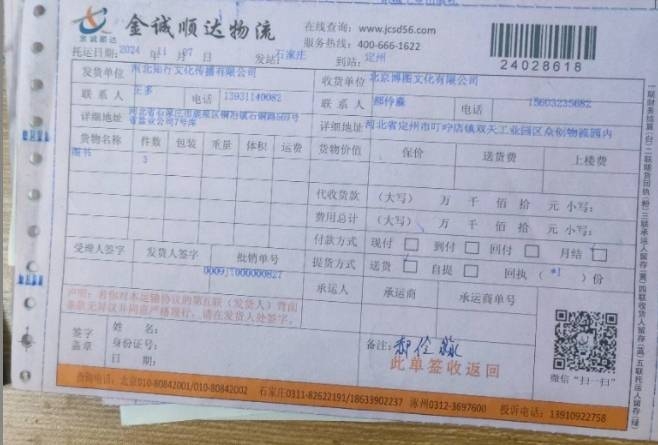 金诚顺达
金诚顺达物流
在线查询：www.jcsd56.com
服务热线：400-666-1622
24028618
托运日期：2024 年 11 月 07 日 发站：石家庄 到站：定州
发货单位 河北知行文化传播有限公司 收货单位 北京博图文化有限公司
联系人 王多 电话 13931140082 联系人 电话 15603235682
详细地址 河北省石家庄市鹿泉区铜冶镇石铜路569号 详细地址 河北省定州市叮咛店镇双天工业园区众创物流园内
货物名称 件数 包装 重量 体积 运费 货物价值 保价 送货费 上楼费
图书 3
代收货款 （大写） 万 仟 佰 拾 元 小写：
费用总计 （大写） 万 仟 佰 拾 元 小写：
付款方式 现付 到付 回付 月结
受理人签字 发货人签字 批销单号 提货方式 送货 自提 回执（ *1 ）份
0009JT000000827
承运人 承运商 承运商单号
声明：若你对本运输协议的第五联（发货人）背面
条款无异议并同意严格履行，请在发货人处签字。
签字
盖章
姓名：
身份证号：
日期：
备注：
此单签收返回
微信“扫一扫”
查询电话：北京010-80842001/010-80842002 石家庄0311-82622191/18633902237 涿州0312-3697600 投诉电话：13910922758